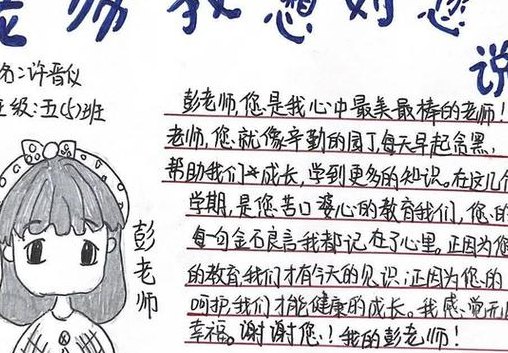 老师我想对您
说
名:许晋仪
班级:五(5)班
彭老师,您是我心中最美最棒的老师!
老师,您就像辛勤的园丁每天早起贪黑,
帮助我们成长,学到更多的知识。在这几个
学期,是您苦口婆心的教育我们,您的
每一句金石良言我都记在了心里。正因为您
的教育,我们才有今天的见识;正因为您的
呵护,我们才能健康的成长。我感觉无比
幸福。谢谢您!我的彭老师!
彭老师